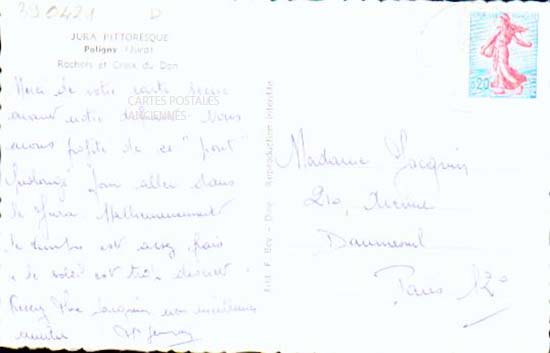 390421 D
JURA PITTORESQUE
Poligny (Jura)
Rochers et Croix du Dan
Merci de votre carte reçue
CARTES POSTALES
ANCIENNES
avant notre départ. Nous
avons profité de ce "pont"
prolongé pour aller dans
le Jura. Malheureusement
le timbre est assez frais
le soleil est très discret.
Recevez Mme Jacquin nos meilleures
amitiés
Edit. F. Bey - Dole Reproduction interdite
0,20
Madame Jacquin
210, Avenue
Daumesnil
Paris 12e